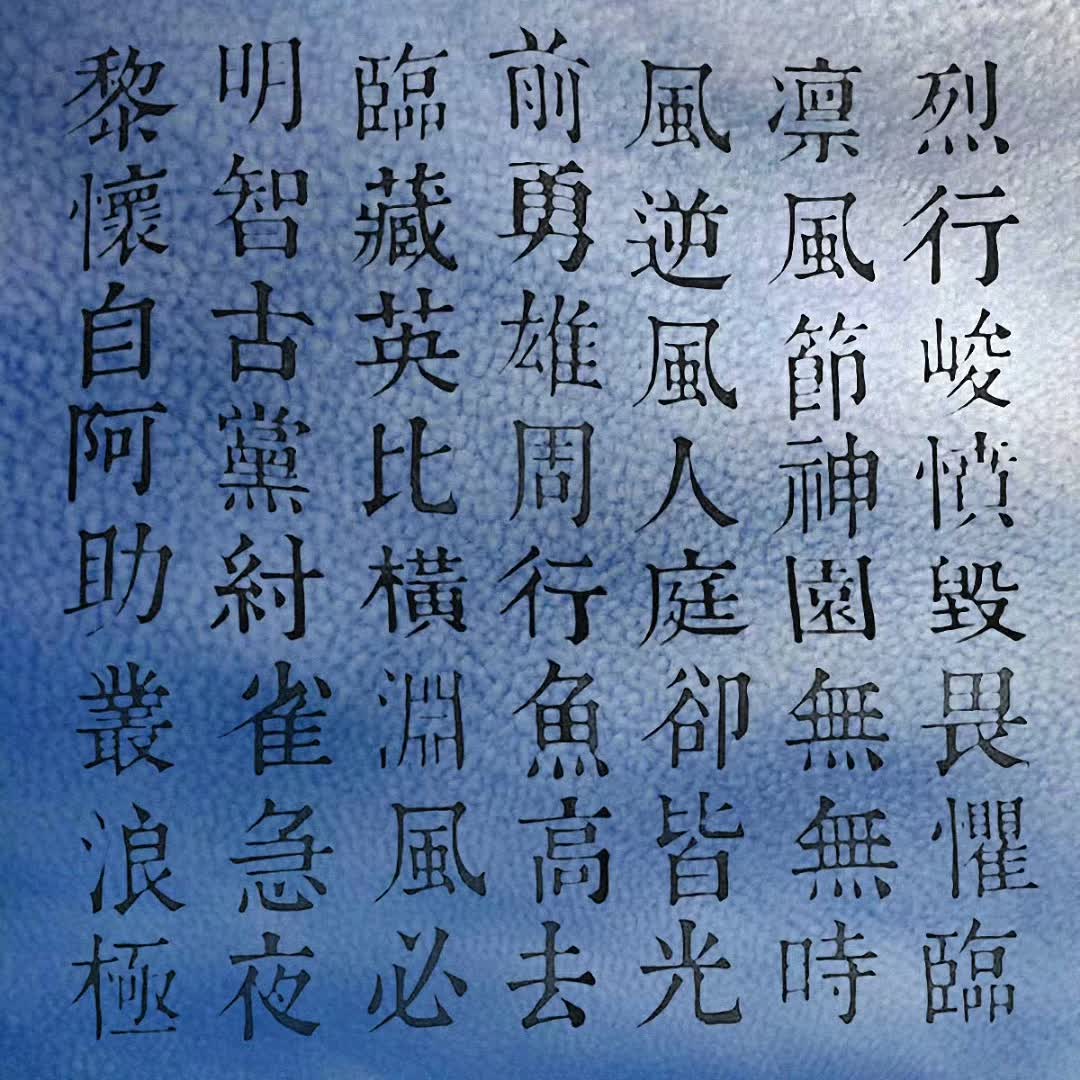 烈行峻憤毀畏懼臨
凛風節神園無無時
風逆風人庭卻皆光
前勇雄周行魚高去
臨藏英比橫淵風必
明智古黨紂雀急夜
黎懷自阿助叢浪極